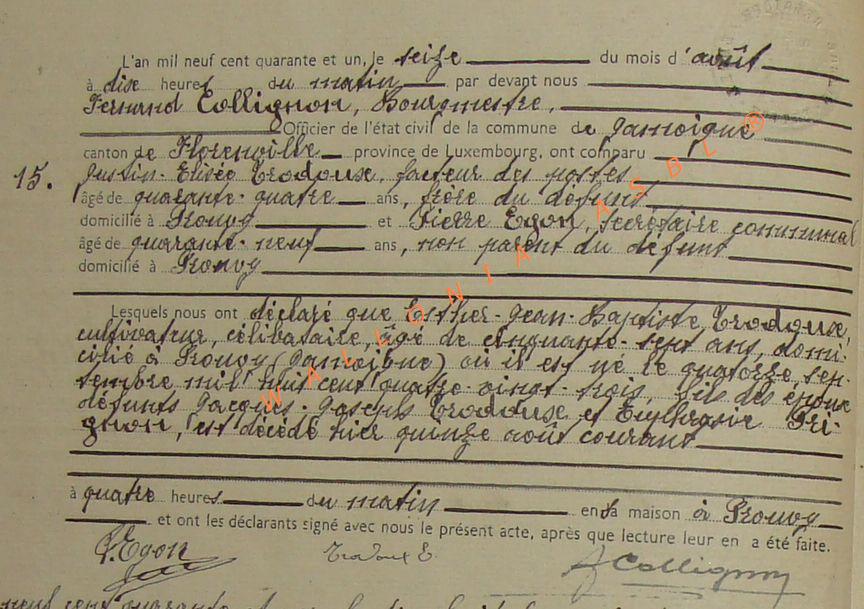 L'an mil neuf cent quarante et un, le seize du mois d'août
à dise heures du matin par devant nous
Fernand Collignon, Bourgmestre,
Officier de l'état civil de la commune de Jamoigne
canton de Florenville province de Luxembourg, ont comparu
15. Justin-Elisée Trodoux, facteur des postes
âgé de quarante-quatre ans, frère du défunt
domicilié à Prouvy et Pierre Egon, secrétaire communal
âgé de quarante-neuf ans, non parent du défunt
domicilié à Prouvy
Lesquels nous ont déclaré que Esther-Jean-Baptiste Trodoux,
cultivateur, célibataire, âgé de cinquante-sept ans, domi-
cilié à Prouvy (Jamoigne) où il est né le quatorze sep-
tembre mil huit cent quatre-vingt-trois, fils des époux
défunts Jacques-Joseph Trodoux et Euphrasie Pri-
gnon, est décédé hier quinze août courant
à quatre heures du matin en sa maison à Prouvy
et ont les déclarants signé avec nous le présent acte, après que lecture leur en a été faite.
P. Egon Trodoux E. F Collignon
WALLONIA ASBL ®